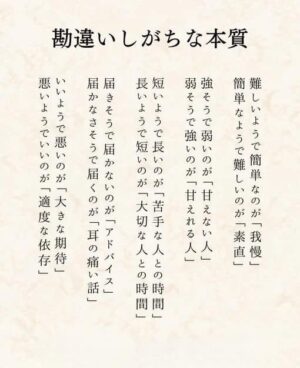 勘違いしがちな本質
難しいようで簡単なのが「我慢」
簡単なようで難しいのが「素直」
強そうで弱いのが「甘えない人」
弱そうで強いのが「甘えれる人」
短いようで長いのが「苦手な人との時間」
長いようで短いのが「大切な人との時間」
届きそうで届かないのが「アドバイス」
届かなさそうで届くのが「耳の痛い話」
いいようで悪いのが「大きな期待」
悪いようでいいのが「適度な依存」